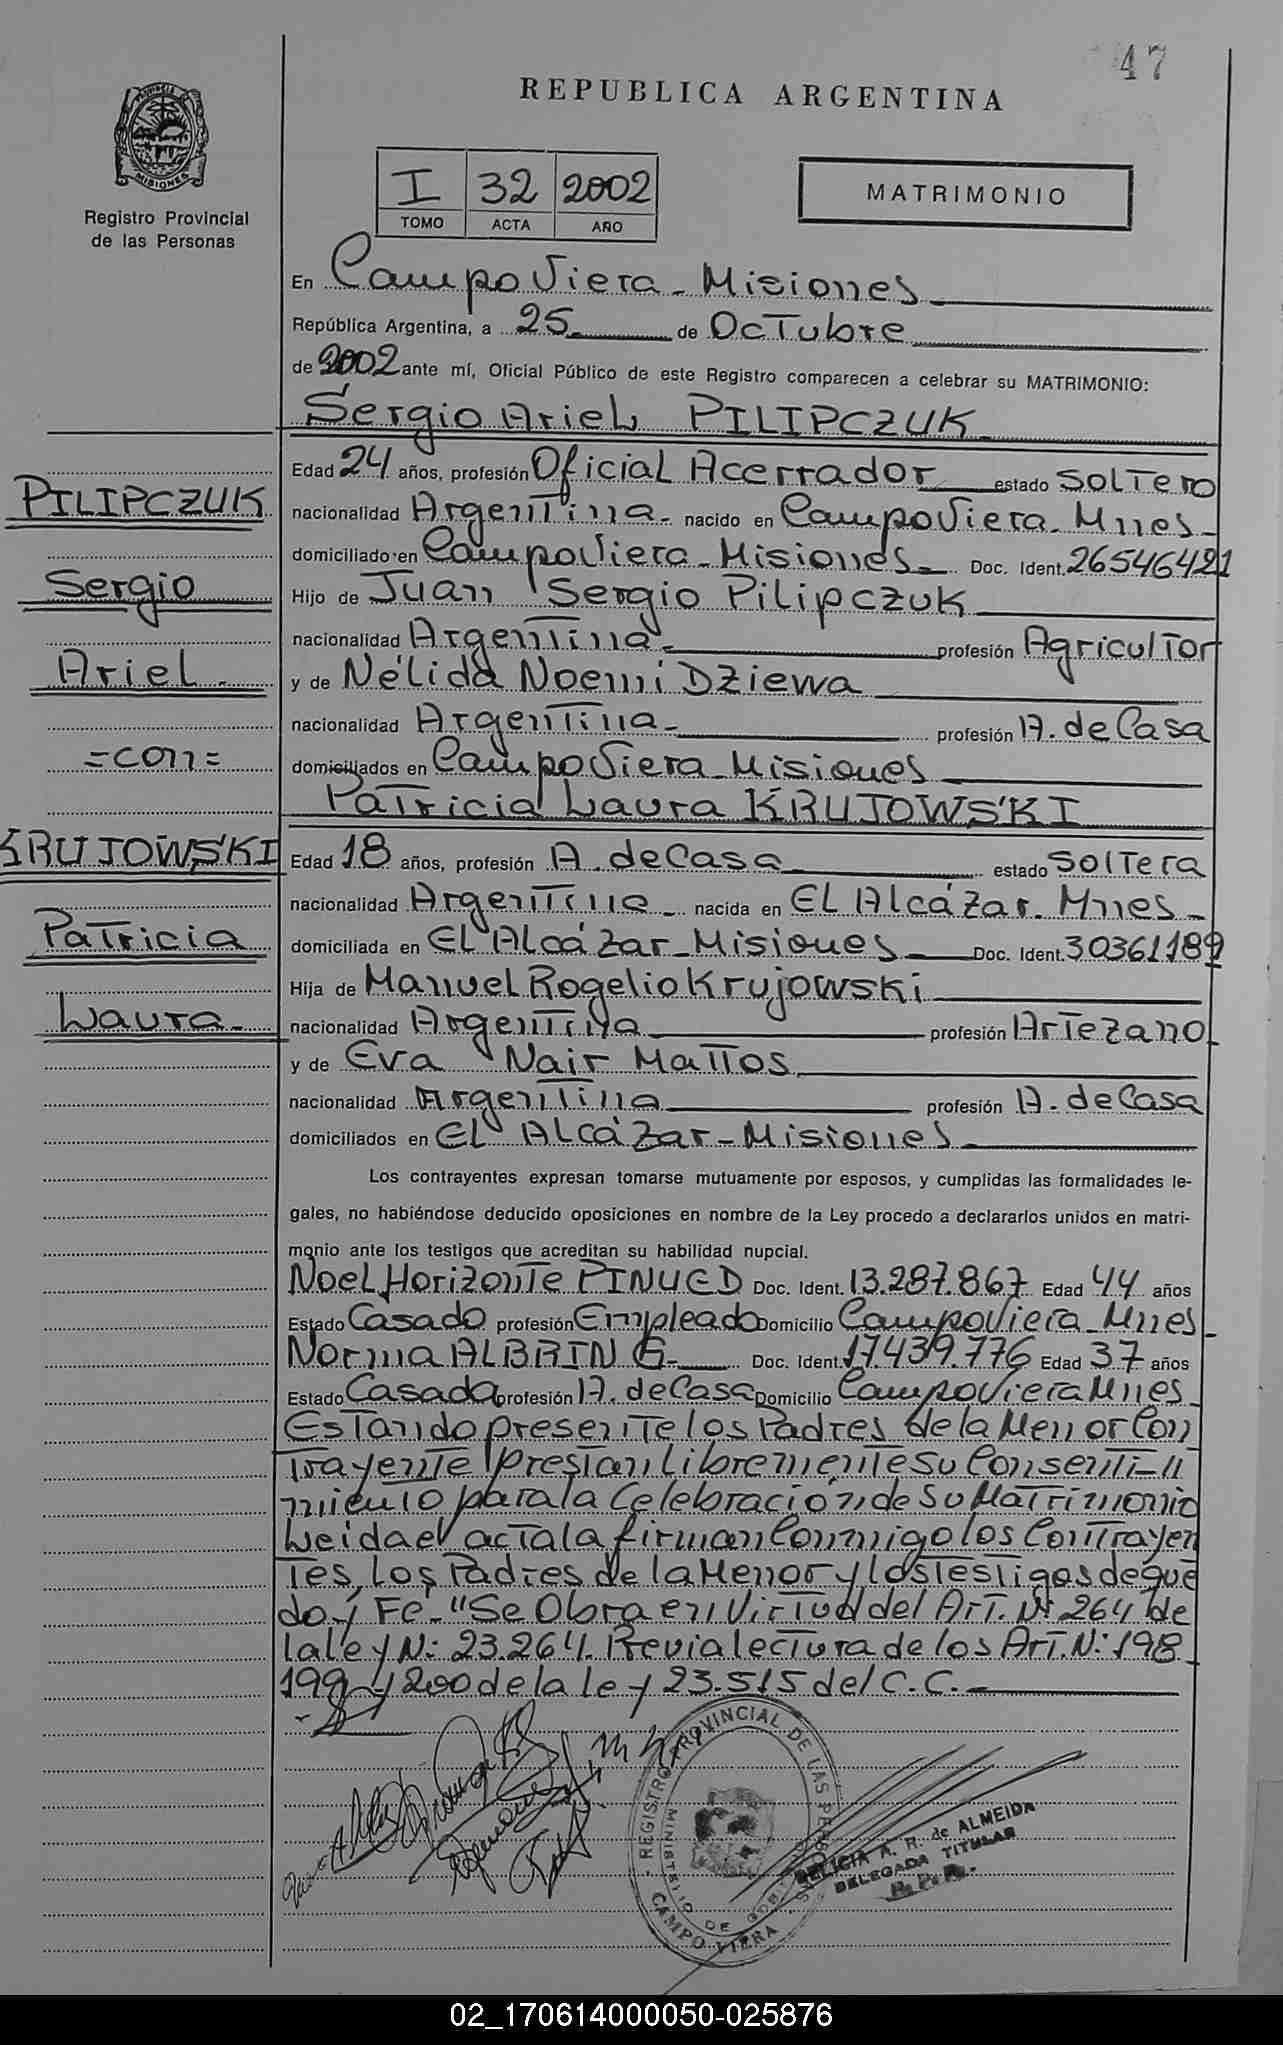 47
REPUBLICA ARGENTINA
PROVINCIA DE
MISIONES
Registro Provincial
de las Personas
I 32 2002
TOMO ACTA AÑO
MATRIMONIO
En Campo Viera - Misiones
República Argentina, a 25 de Octubre
de 2002 ante mí, Oficial Público de este Registro comparecen a celebrar su MATRIMONIO:
Sergio Ariel PILIPCZUK
Edad 24 años, profesión Oficial Acerrador estado Soltero
PILIPCZUK
nacionalidad Argentina - nacido en Campo Viera - Mnes -
domiciliado en Campo Viera - Misiones - Doc. Ident. 26546421
Sergio
Hijo de Juan Sergio Pilipczuk
nacionalidad Argentina - profesión Agricultor
Ariel -
y de Nélida Noemi Dziewa
nacionalidad Argentina - profesión A. de Casa
=con=
domiciliados en Campo Viera - Misiones
Patricia Laura KRUJOWSKI
KRUJOWSKI
Edad 18 años, profesión A. de Casa estado Soltera
nacionalidad Argentina - nacida en El Alcázar - Mnes -
Patricia
domiciliada en El Alcázar - Misiones Doc. Ident. 30361189
Hija de Manuel Rogelio Krujowski
Laura -
nacionalidad Argentina profesión Artezano
y de Eva Nair Mattos
nacionalidad Argentina profesión A. de Casa
domiciliados en El Alcázar - Misiones
Los contrayentes expresan tomarse mutuamente por esposos, y cumplidas las formalidades le-
gales, no habiéndose deducido oposiciones en nombre de la Ley procedo a declararlos unidos en matri-
monio ante los testigos que acreditan su habilidad nupcial.
Noel Horizonte PINUED Doc. Ident. 13.287.867 Edad 44 años
Estado Casado profesión Empleado Domicilio Campo Viera - Mnes -
Norma ALBRING - Doc. Ident. 17.439.776 Edad 37 años
Estado Casada profesión A. de Casa Domicilio Campo Viera Mnes
Estando presente los Padres de la Menor Con
trayente prestan libremente su Consenti-
miento para la Celebración de su Matrimonio
Leida el acta la firman Conmigo los Contrayen
tes, Los Padres de la Menor y los Testigos de que
doy Fe - "Se Obra en Virtud del Art. Nº 264 de
la ley N: 23.264. Previa lectura de los Art. N: 198
199 y 200 de la ley 23.515 del C.C. -
REGISTRO PROVINCIAL DE LAS PERSONAS
MINISTERIO DE
CAMPO VIERA
DELICIA A. R. de ALMEIDA
DELEGADA TITULAR
R.P.P.
02_170614000050-025876